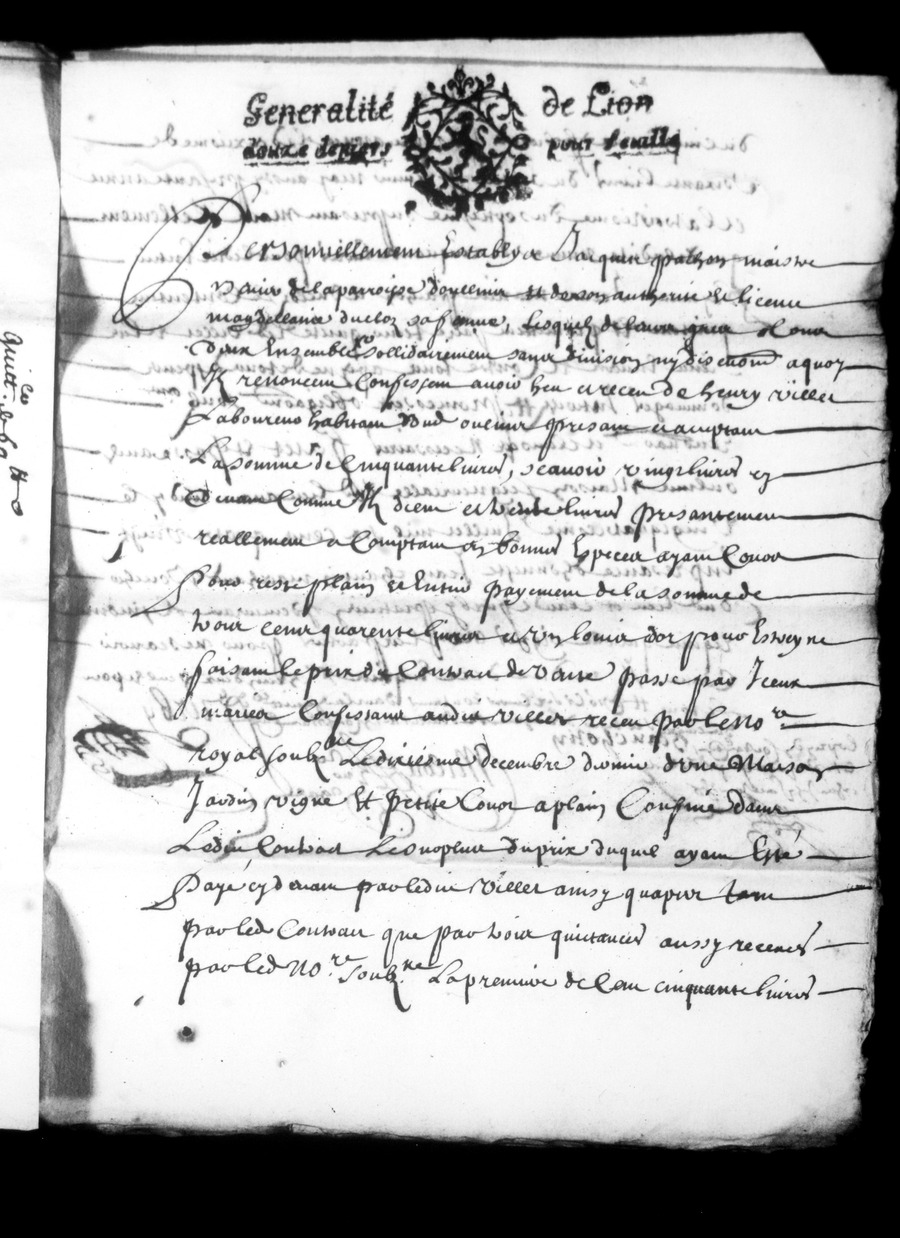 Generalité de Lion
douze deniers pour feuille
Personnellement Estably Jacques maistre
de la parroisse doullins et de son authorite et licence
magdellaine duclos sa femme, lesquels de leur gré
deux Ensemble sollidairement sans division ny discution a quoy
Ils renoncent Confessent avoir heu et receu de henry villet
Laboureur habitant presant et acceptant
La somme de Cinquante livres, scavoir vingt livres cy
devant Comme Ils dient et trente livres presantement
reallement et Comptant en bonnes Especes ayant Cours
pour reste plain et Entier payement de la somme de
trois cents quarente livres et un louis dor pour Estreyne
faisant le prix du Contract de vente passé par Iceux
mariés Confessans audit villet receu par le No.re
royal soub.né Le dixiesme decembre dernier dune Maison
Jardin vigne et petite Cour a plain Confiné dans
Ledit Contract Le surplus du prix duquel ayant Esté
Payé cy devant par ledit Villet ainsy quapert tant
par led Contract que par trois quictances aussy receues
par led No.re soub.né La premiere de Cent cinquante livres